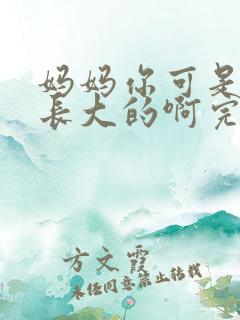 妈妈你可是
长大的啊完
方文霞
未经同意禁止转载